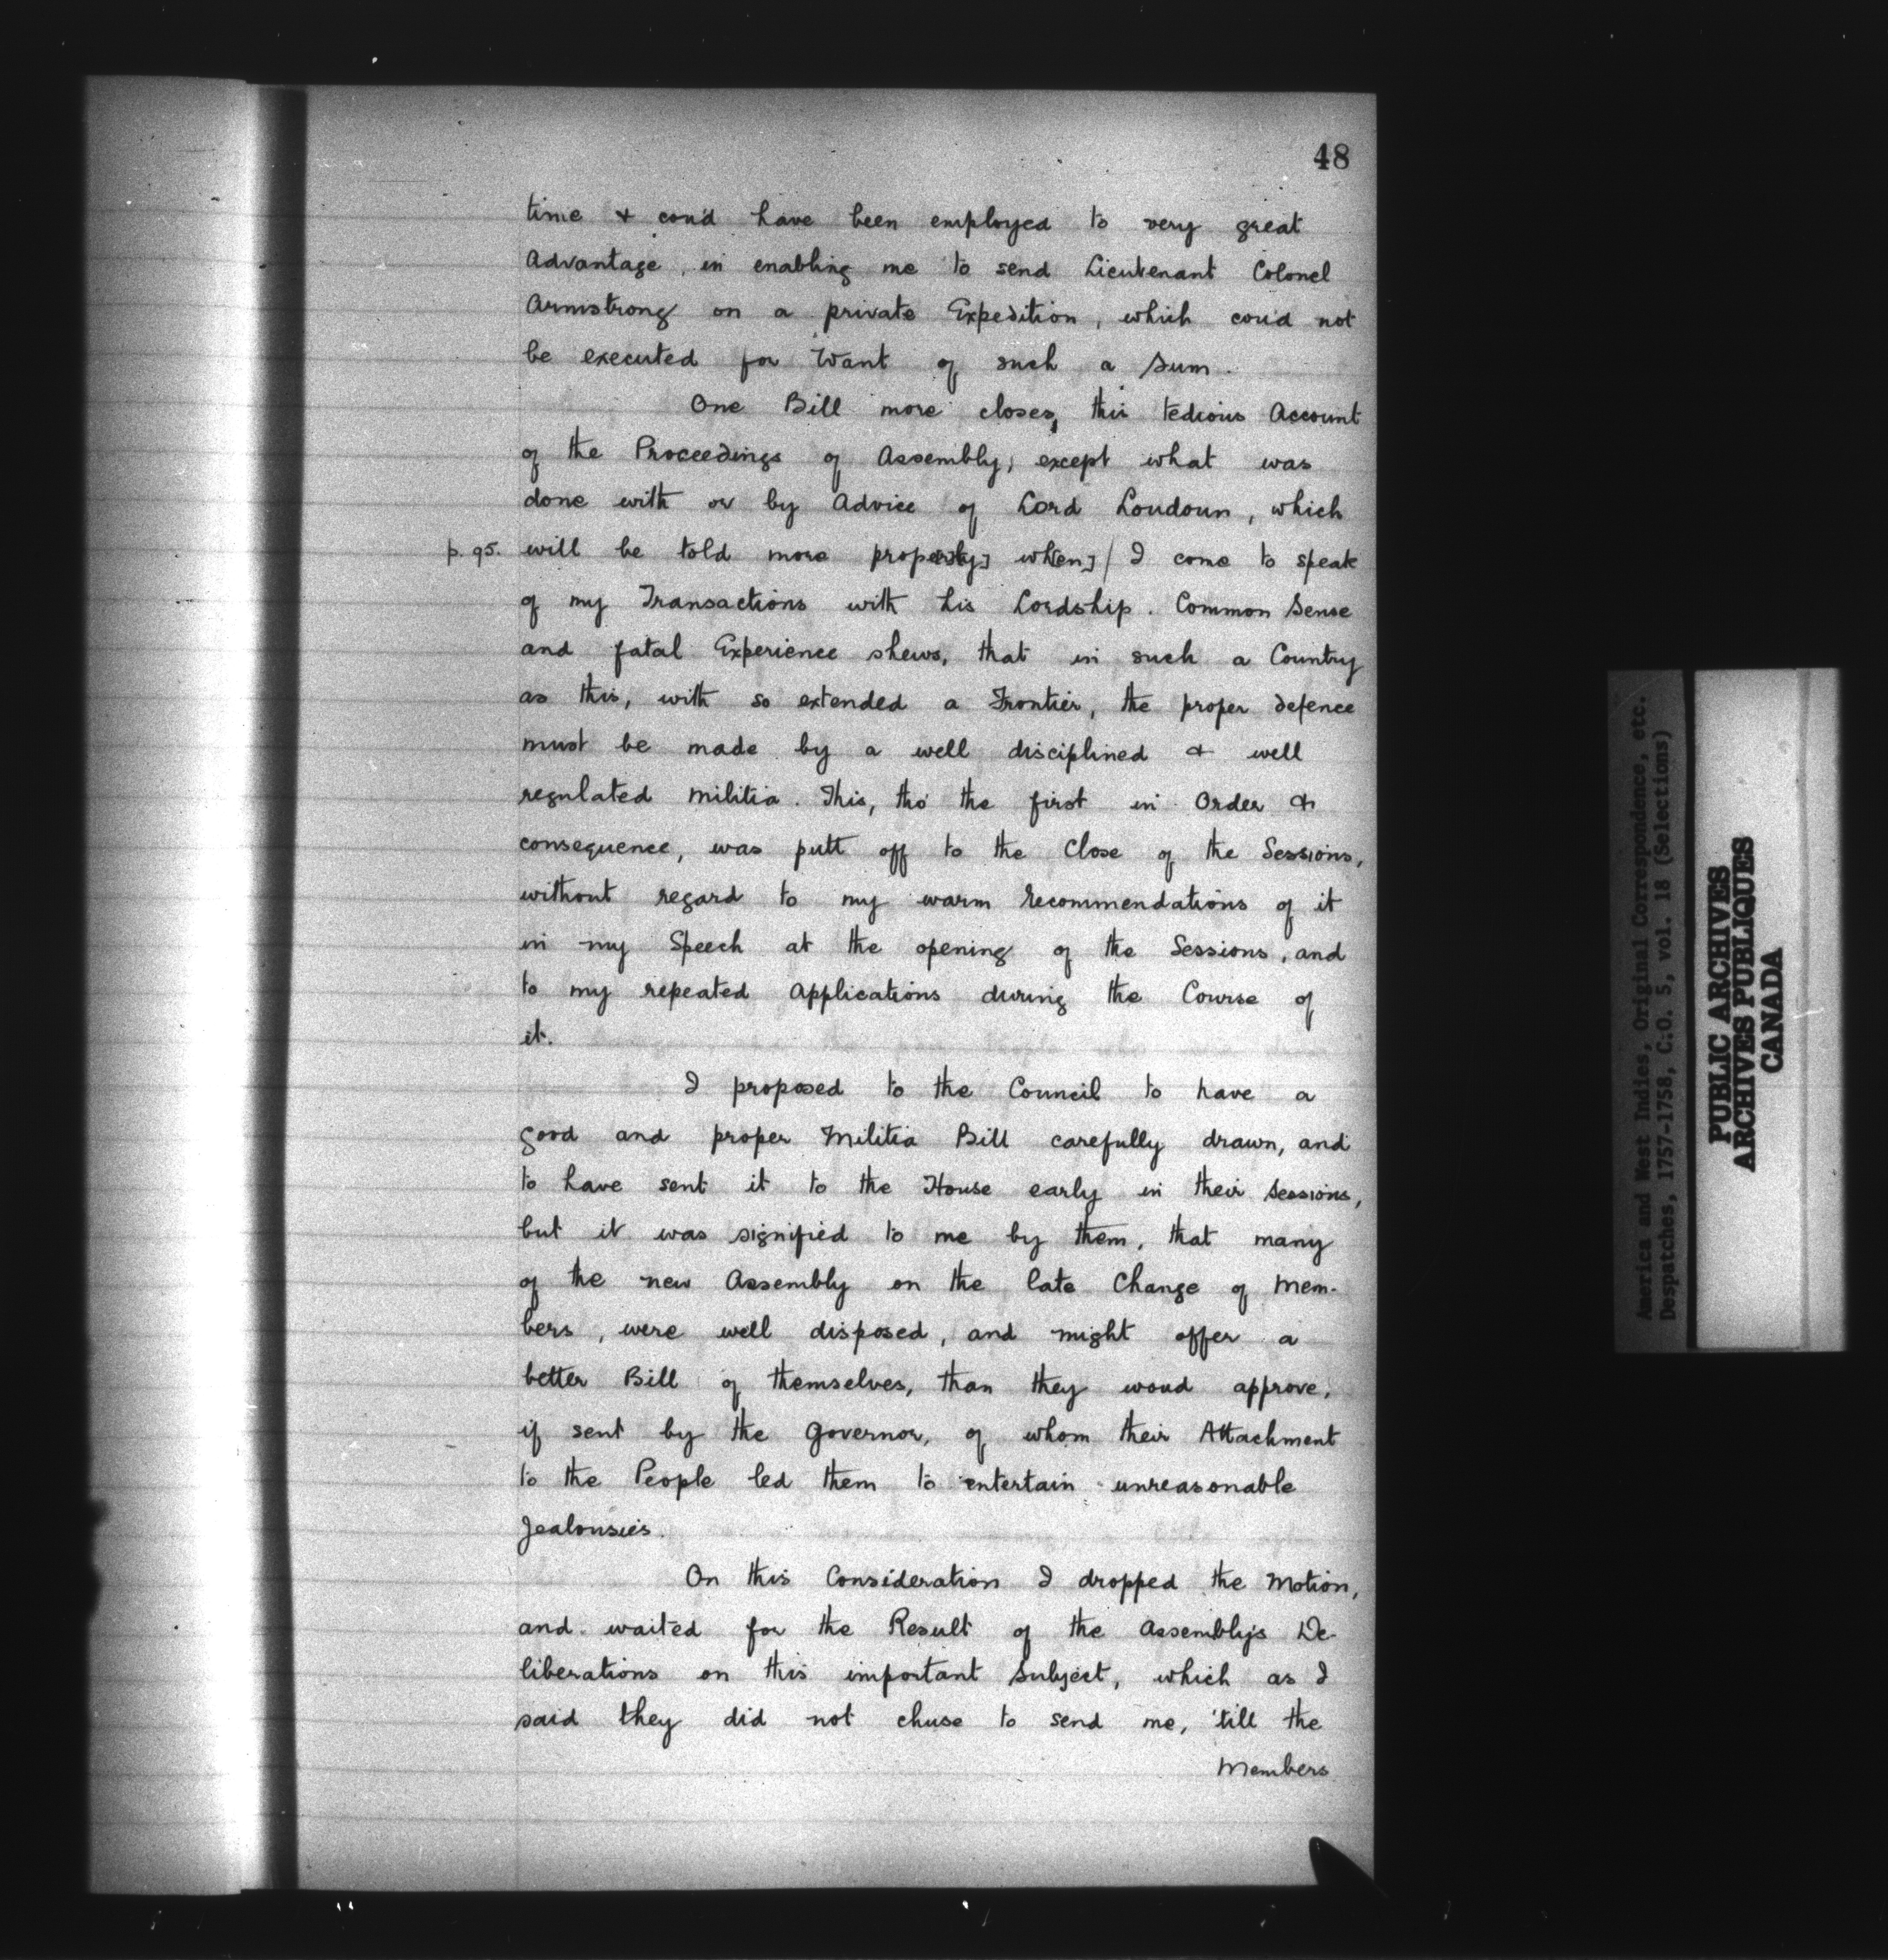 48
time & cou'd have been employed to very great
Advantage, in enabling me to send Lieutenant Colonel
Armstrong on a private Expedition, which cou'd not
be executed for Want of such a Sum.
One Bill more closes, this tedious Account
of the Proceedings of Assembly, except what was
done with or by Advice of Lord Loudoun, which
p. 95. will be told more prope[rly] wh[en] / I come to speak
of my Transactions with his Lordship. Common Sense
and fatal Experience shews, that in such a Country
as this, with so extended a Frontier, the proper defence
must be made by a well disciplined & well
regulated Militia. This, tho' the first in Order &
consequence, was putt off to the Close of the Sessions,
without regard to my warm recommendations of it
in my Speech at the opening of the Sessions, and
to my repeated Applications during the Course of
it.
I proposed to the Council to have a
good and proper Militia Bill carefully drawn, and
to have sent it to the House early in their Sessions,
but it was signified to me by them, that many
of the new Assembly on the late Change of Mem-
bers, were well disposed, and might offer a
better Bill of themselves, than they woud approve,
if sent by the Governor, of whom their Attachment
to the People led them to entertain unreasonable
Jealousies.
On this Consideration I dropped the Motion,
and waited for the Result of the Assembly's De-
liberations on this important Subject, which as I
said they did not chuse to send me, 'till the
Members
America and West Indies, Original Correspondence, etc.
Despatches, 1757-1758, C.O. 5, vol. 18 (Selections)
PUBLIC ARCHIVES
ARCHIVES PUBLIQUES
CANADA